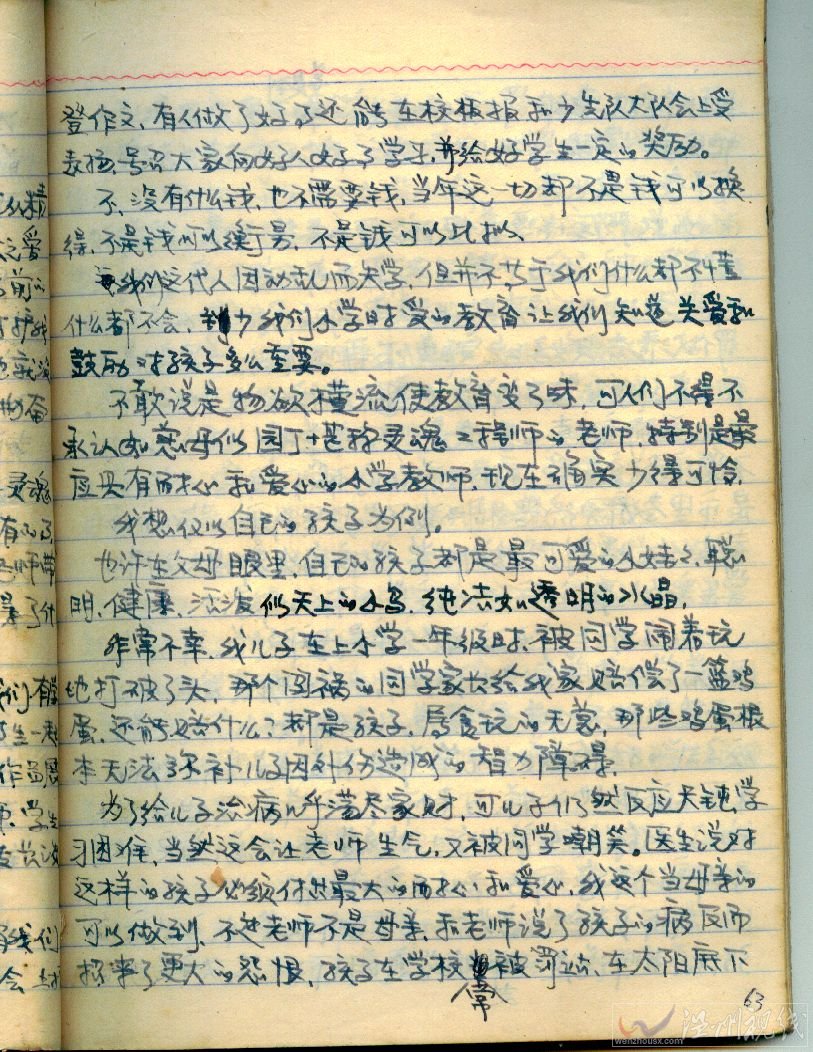 登作文、有人做了好了还能在校板报和少先队大队会上受
表扬、号召大家向好人好了学习,并给好学生一定的奖励。
不、没有什么钱、也不需要钱,当年这一切都不是钱可以换
得、不是钱可以衡量,不是钱可以比拟、
我们这代人因动乱而失学,但并不等于我们什么都不懂
什么都不会,到少我们小学时受的教育让我们知道关爱和
鼓励对孩子多么重要。
不敢说是物欲横流使教育变了味,可人们不得不
承认如慈母似园丁堪称灵魂工程师的老师,特别是最
应具有耐心和爱心的小学教师、现在确实少得可怜,
我想仅以自己的孩子为例。
也许在父母眼里,自己的孩子都是最可爱的小娃々、聪
明、健康、活泼似天上的小鸟,纯洁如透明的水晶,
非常不幸,我儿子在上小学一年级时、被同学闹着玩
地打破了头,那个闯祸的同学家长给我家赔偿了一篮鸡
蛋,还能赔什么?都是孩子,属贪玩的无意,那些鸡蛋根
本无法弥补儿子因外伤造成的智力障碍,
为了给儿子治病几乎荡尽家财,可儿子仍然反应失钝,学
习困难,当然这会让老师生气,又被同学嘲笑。医生说对
这样的孩子必须付出最大的耐心和爱心,我这个当母亲的
可以做到,不过老师不是母亲,和老师说了孩子的病反而
招来了更大的怨恨,孩子在学校常被罚站、在太阳底下
63
温州视线
wenzhousx.com